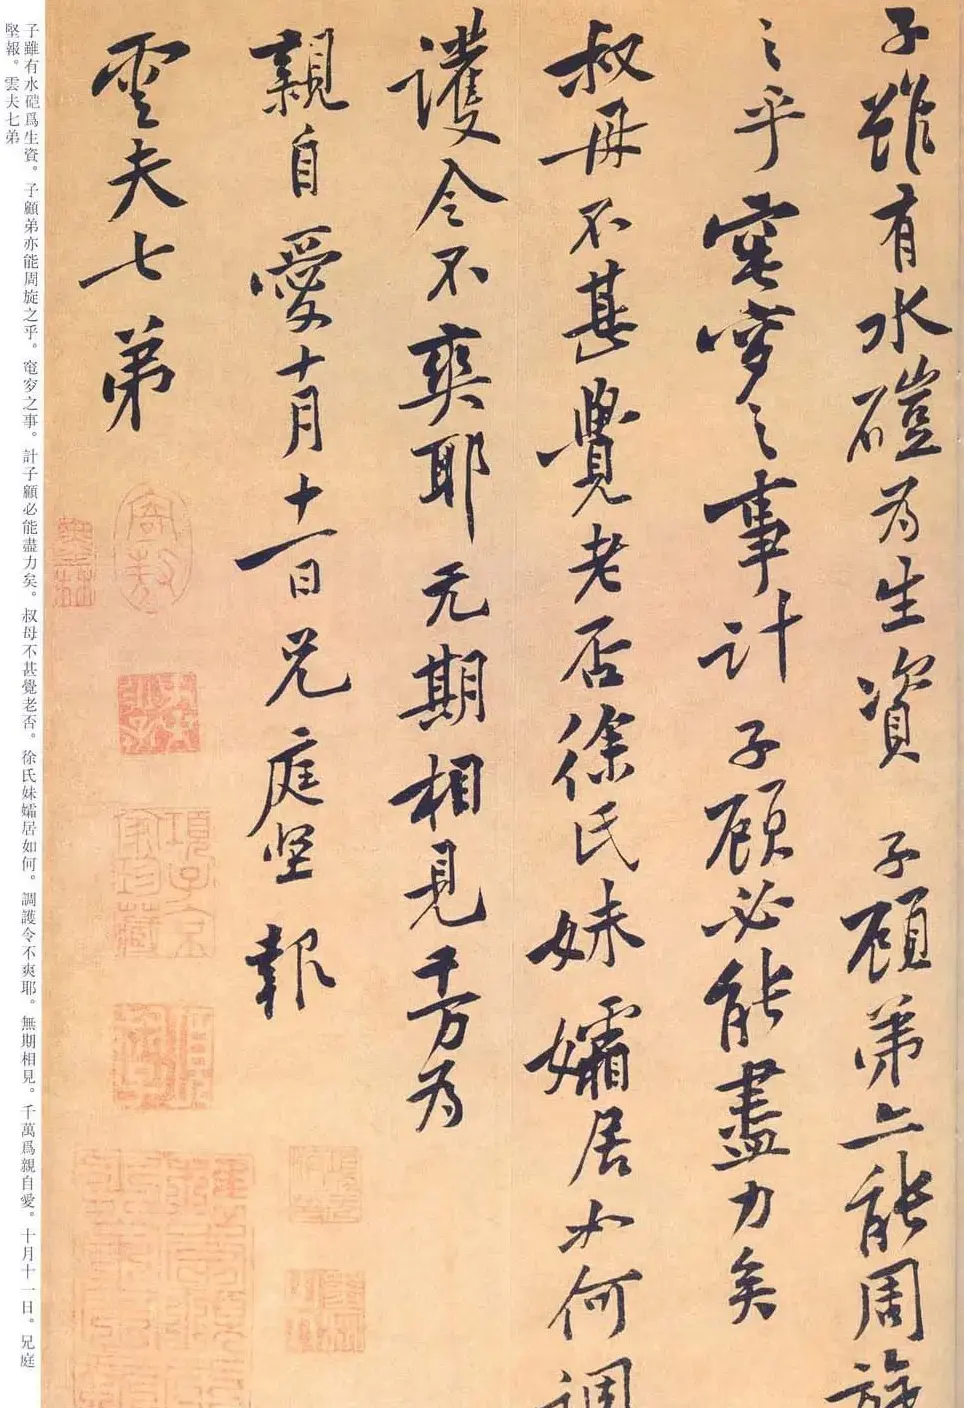 子雖有水磑為生資子顧弟亦能周旋
之乎窀穸之事計子顧必能盡力矣
叔母不甚覺老否徐氏妹孀居如何調
護令不爽耶无期相見千万为
親自愛十月十一日兄庭坚報
雲夫七弟
項子京
家珍藏
子雖有水磑爲生資。子顧弟亦能周旋之乎。窀穸之事。計子顧必能盡力矣。叔母不甚覺老否。徐氏妹孀居如何。調護令不爽耶。無期相見。千萬爲親自愛。十月十一日。兄庭
堅報。雲夫七弟